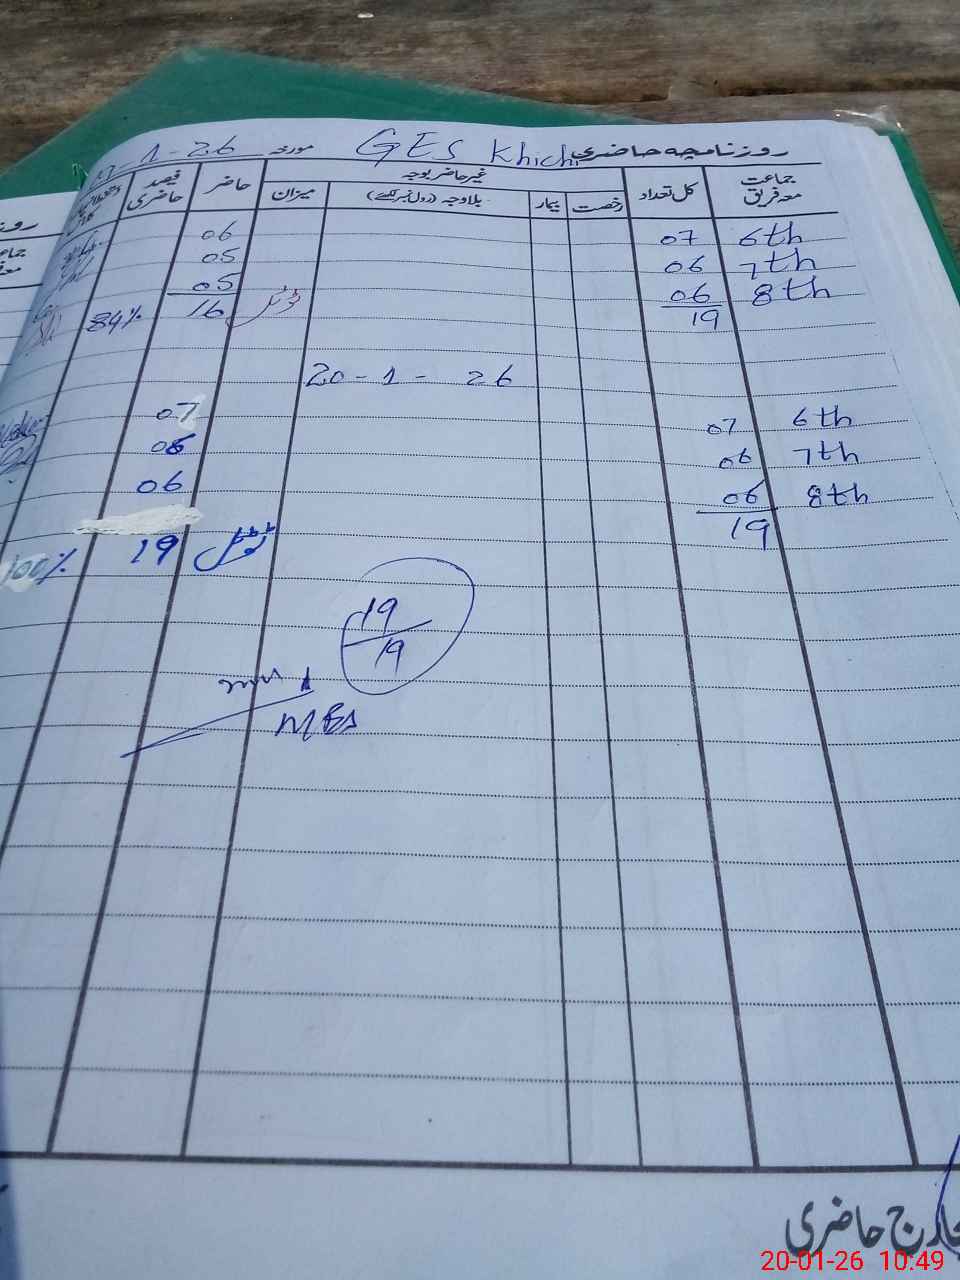 روزنامچہ حاضری GES Khichi مورخہ -1-26
جماعت معہ فریق کل تعداد غیر حاضر بوجہ حاضر فیصد حاضری
رخصت بیمار بلاوجہ (رول نمبر لکھیے) میزان
6th 07 06
7th 06 05
8th 06 05
19 ٹوٹل 16 84%
20-1-26
6th 07 07
7th 06 06
8th 06 06
19 ٹوٹل 19 100%
19
19
حاضری
20-01-26 10:49